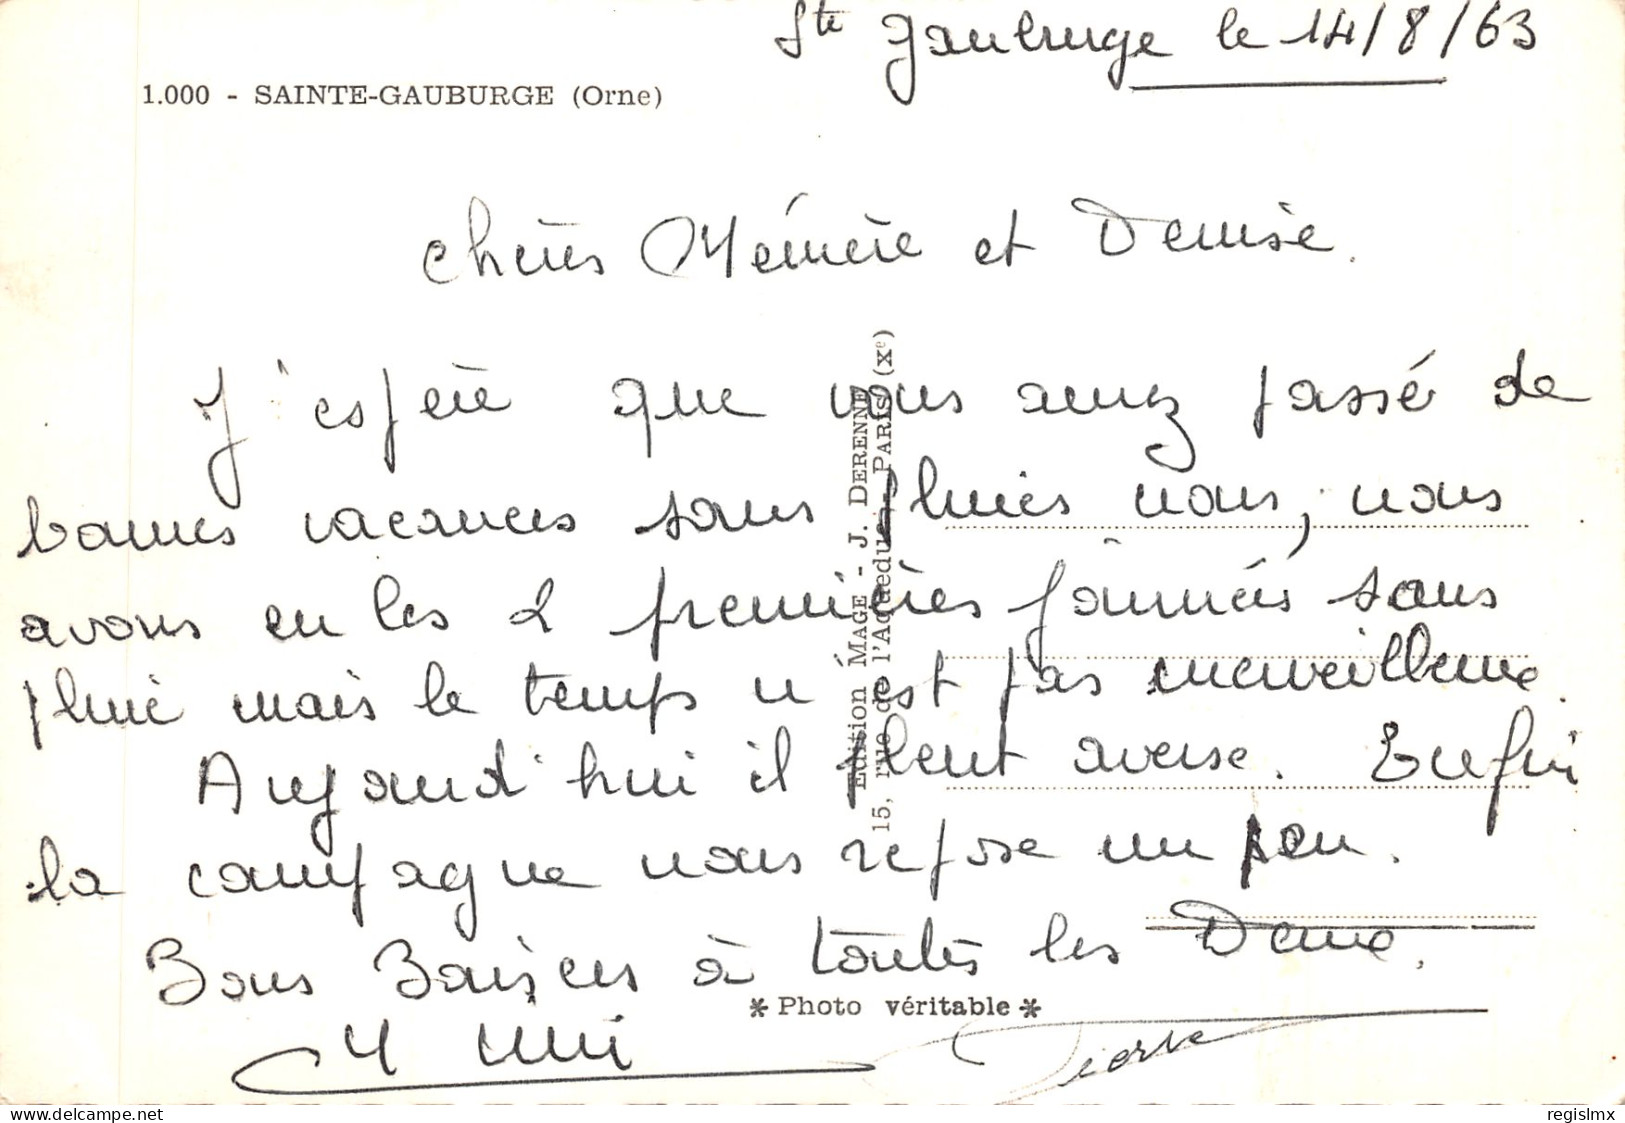 Ste Gauburge le 14/8/63
1.000 - SAINTE-GAUBURGE (Orne)
Chères Mémère et Denise.
J'espère que vous avez passé de
bonnes vacances sans pluies nous, nous
avons eu les 2 premières journées sans
pluie mais le temps n'est pas merveilleux.
Aujourd'hui il pleut averse. Enfin
la campagne nous repose un peu.
Bons Baisers à toutes les Deux.
Pierre
Edition MAGE - J. DERENNE
15, rue de l'Aqueduc, PARIS (Xe)
* Photo véritable *
delcampe.net
regislmx